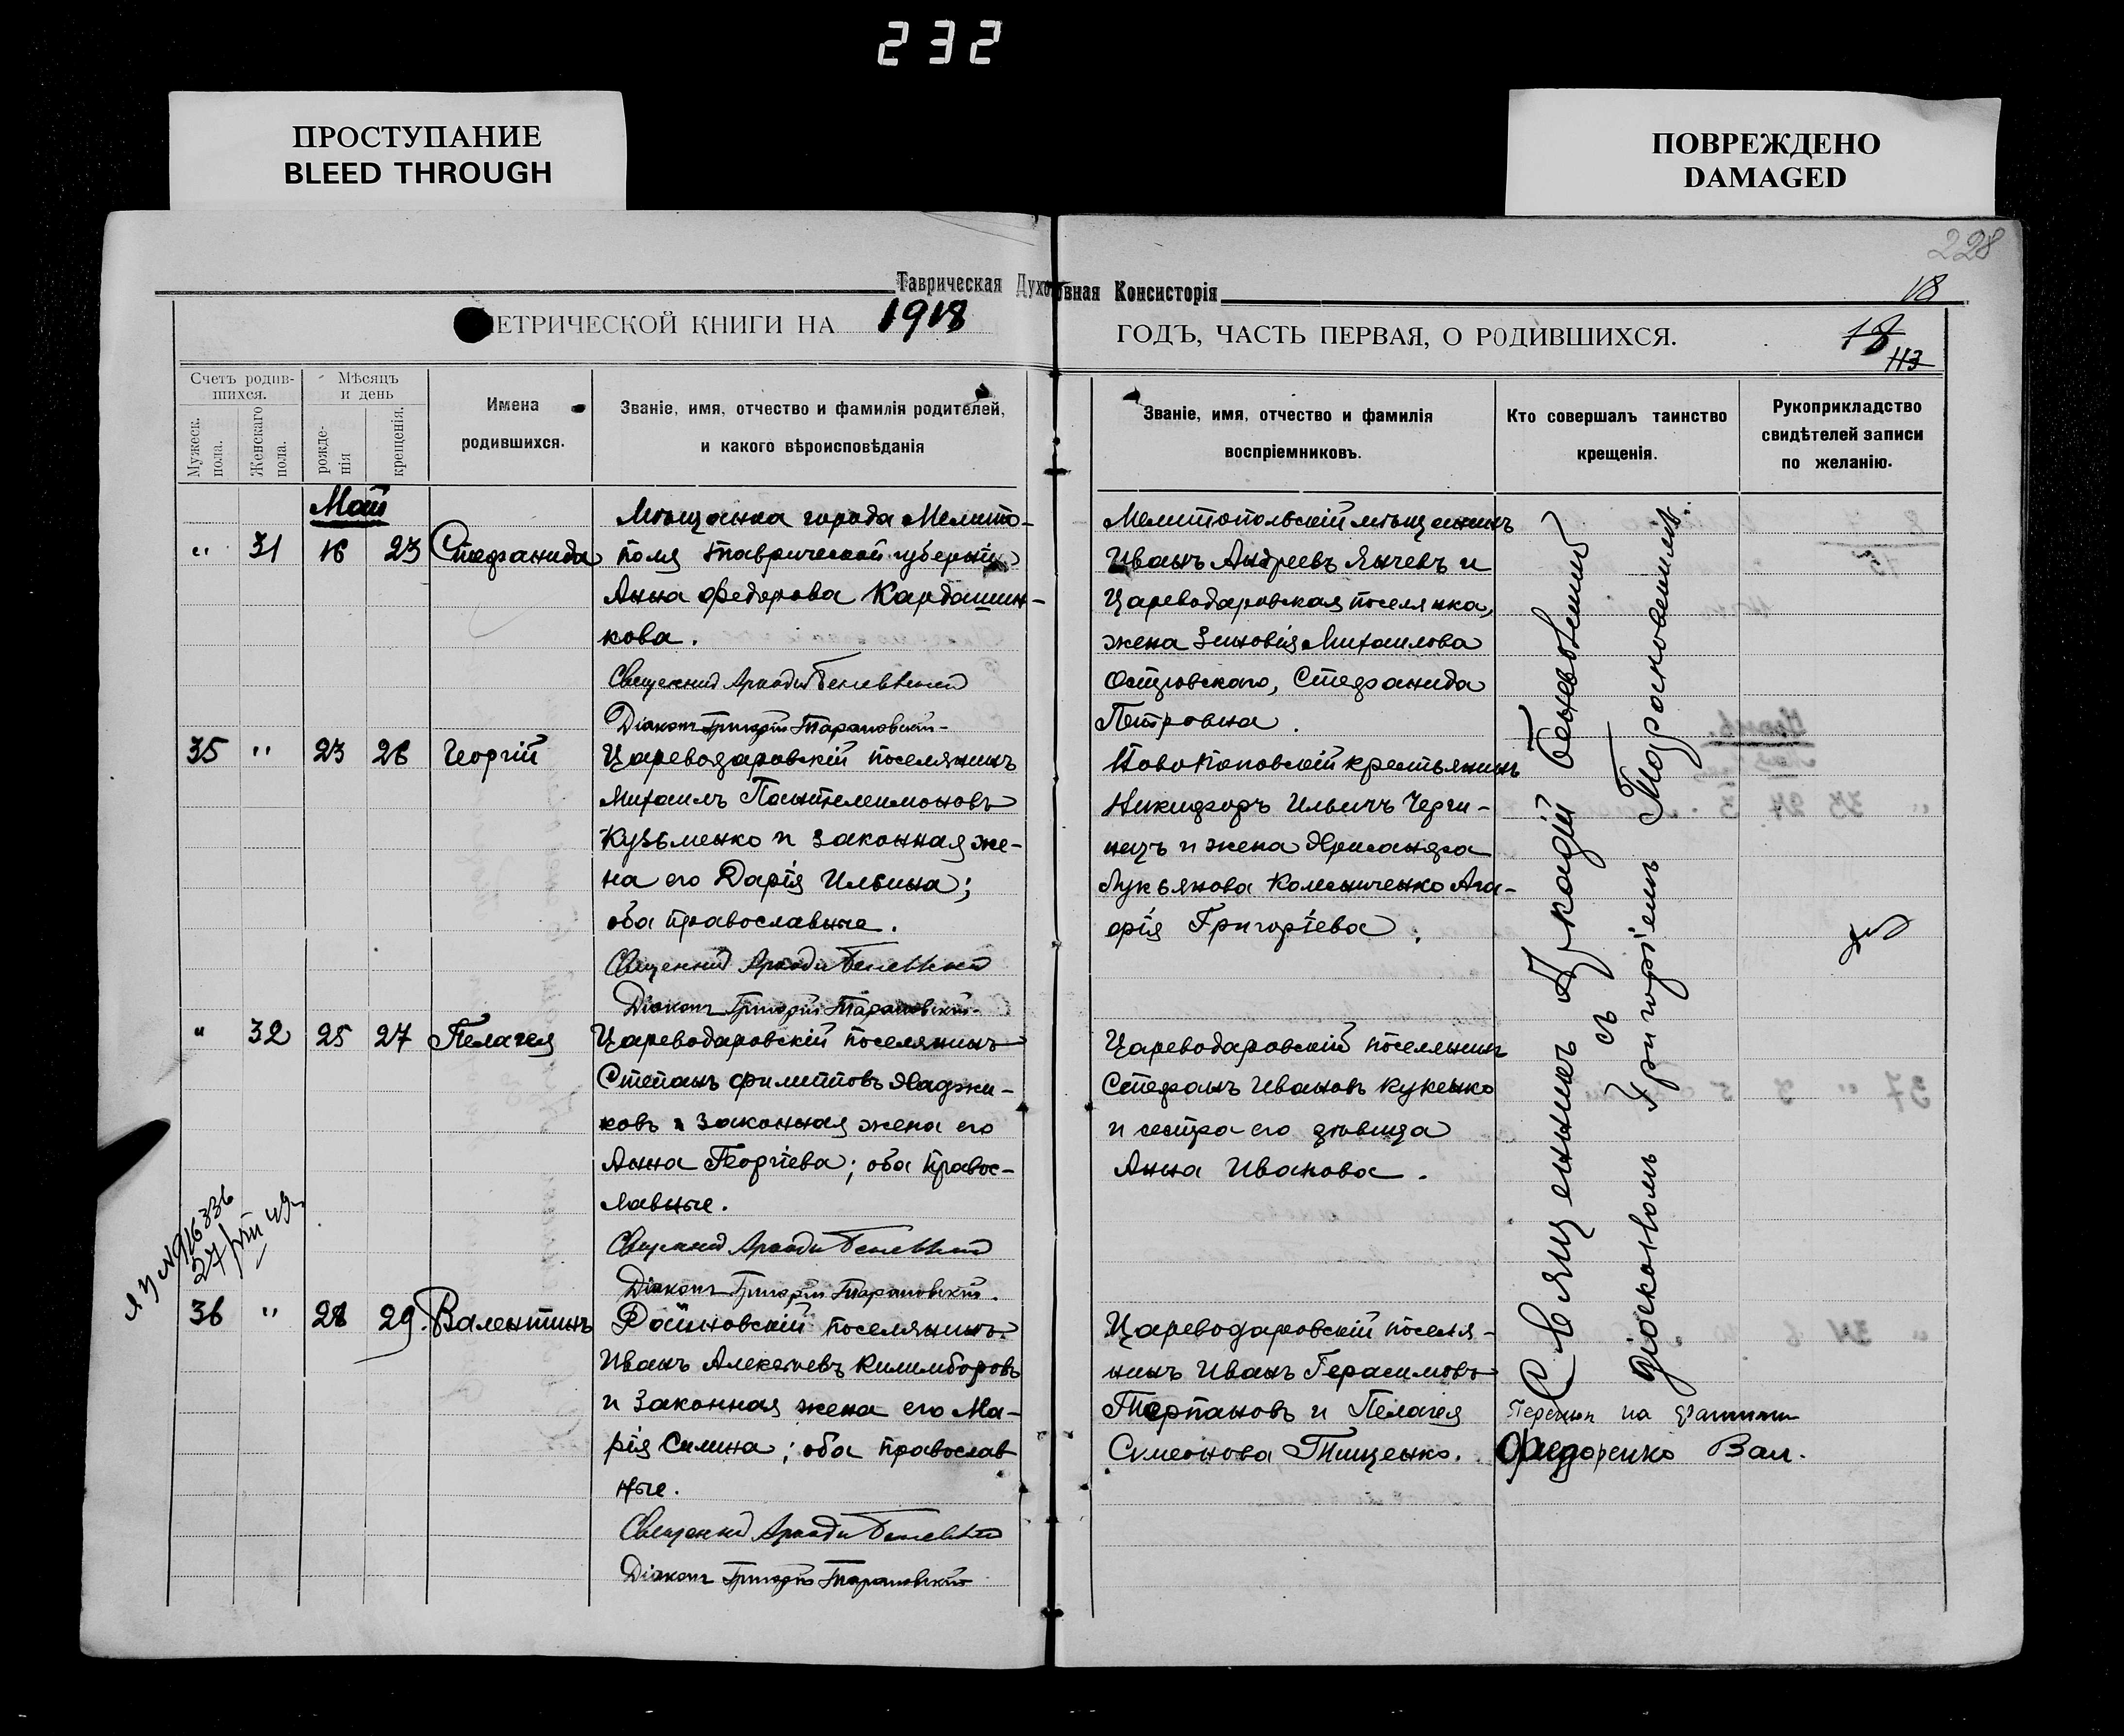 232
ПРОСТУПАНИЕ
BLEED THROUGH
ПОВРЕЖДЕНО
DAMAGED
228
Таврическая Духовная Консисторія
18
ЕТРИЧЕСКОЙ КНИГИ НА 1918 ГОДЪ, ЧАСТЬ ПЕРВАЯ, О РОДИВШИХСЯ.
18
113
Счетъ родив-
шихся.
Мужеск.
пола.
Женскаго
пола.
Мѣсяцъ
и день
рожде-
нія
крещенія.
Имена
родившихся.
Званіе, имя, отчество и фамилія родителей,
и какого вѣроисповѣданія
Званіе, имя, отчество и фамилія
воспріемниковъ.
Кто совершалъ таинство
крещенія.
Рукоприкладство
свидѣтелей записи
по желанію.
Май
" 31 16 23 Стефанида
Мѣщанка города Мелито-
поля Таврической губерніи
Анна Федорова Кардашин-
кова.
Священникъ Аркадій Беневскій
Діаконъ Григорій Тарановскій
Мелитопольскій мѣщанинъ
Иванъ Андреевъ Янчевъ и
Цареводаровская поселянка,
жена Зиновія Михаилова
Островскаго, Стефанида
Петровна.
35 " 23 26 Георгій
Цареводаровскій поселянинъ
Михаилъ Пантелеимоновъ
Кузьменко и законная же-
на его Дарія Ильина;
оба православные.
Священникъ Аркадій Беневскій
Діаконъ Григорій Тарановскій
Никифоръ Ильичъ
и жена
Лукьянова
Григоріева.
" 32 25 27 Пелагея
Цареводаровскій поселянинъ
Степанъ Филипповъ Хаджи-
ковъ и законная жена его
Анна Георгіева; оба правос-
лавные.
Священникъ Аркадій Беневскій
Діаконъ Григорій Тарановскій.
Цареводаровскій поселянинъ
Стефанъ Ивановъ Кукенко
и сестра его дѣвица
Анна Иванова.
36 " 28 29 Валентинъ
поселянинъ
Иванъ Алексѣевъ Килимборовъ
и законная жена его Ма-
рія Силина; оба православ
ные.
Священникъ Аркадій Беневскій
Діаконъ Григорій Тарановскій
Цареводаровскій поселя-
нинъ Иванъ Герасимовъ
Терпановъ и Пелагея
Симеонова Тищенко.
Священникъ Аркадій Беневскій
съ
діакономъ Григоріемъ Тарановскимъ.
на фамилию
Федоренко Вал.